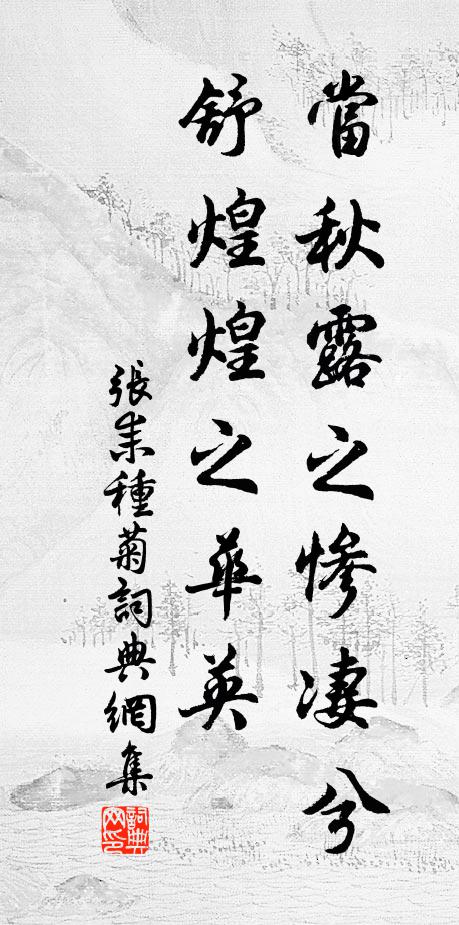 當秋露之慘凄兮
舒煌煌之華英
張耒種菊詞典網集
詞典网印